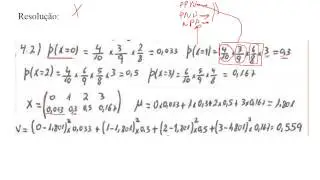 Resolução: X
NPP
4.2) p(x=0) = 4/10 x 3/9 x 2/8 = 0,033 p(x=1) = (4/10 x 3/9 x 6/8) x 3 = 0,3
p(x=2) = 4/10 x 6/9 x 5/8 x 3 = 0,5 p(x=3) = 6/10 x 5/9 x 4/8 = 0,167
X = ( 0 1 2 3
0,033 0,3 0,5 0,167 ) μ = 0x0,033 + 1x0,3 + 2x0,5 + 3x0,167 = 1,801
V = (0-1,801)² x 0,033 + (1-1,801)² x 0,5 + (2-1,801)² x 0,5 + (3-1,801)² x 0,167 = 0,559